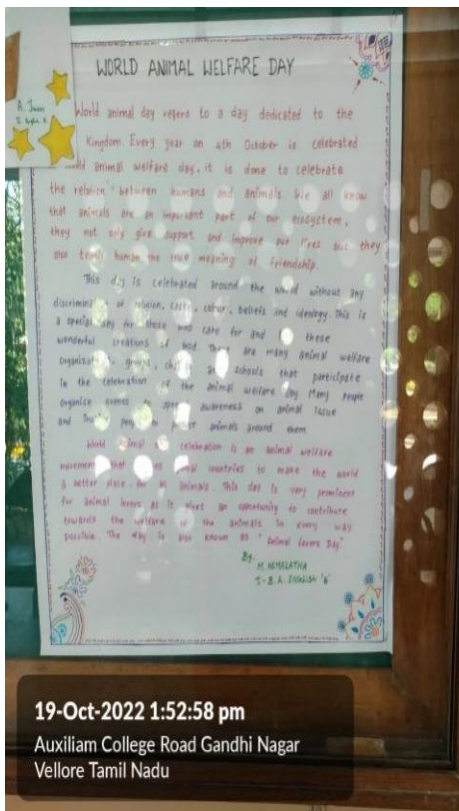 A. Jasm
WORLD ANIMAL WELFARE DAY
World animal day refers to a day dedicated to the
Kingdom. Every year on 4th October is celebrated
animal welfare day. it is done to celebrate
the relation between humans and animals. We all know
that animals are an important part of our ecosystem,
they not only give support and improve our lives but they
also teach human the true meaning of friendship.
This day is celebrated around the world without any
of religion, caste, colour, beliefs and ideology. This is
a special day for those who care for and these
wonderful creations of God. There are many animal welfare
schools that participate
in the celebration of the animal welfare day Many people
organize events to awareness on animal issue
and animals around them
World animal celebration is an animal welfare
movement that countries to make the world
a better place for animals. This day is very prominent
for animal lovers as it gives an opportunity to contribute
towards the welfare of the animals in every way
possible. The day is also known as "Animal lovers Day"
By.
M. HEMALATHA
I - B.A. ENGLISH 'B'
19-Oct-2022 1:52:58 pm
Auxiliam College Road Gandhi Nagar
Vellore Tamil Nadu